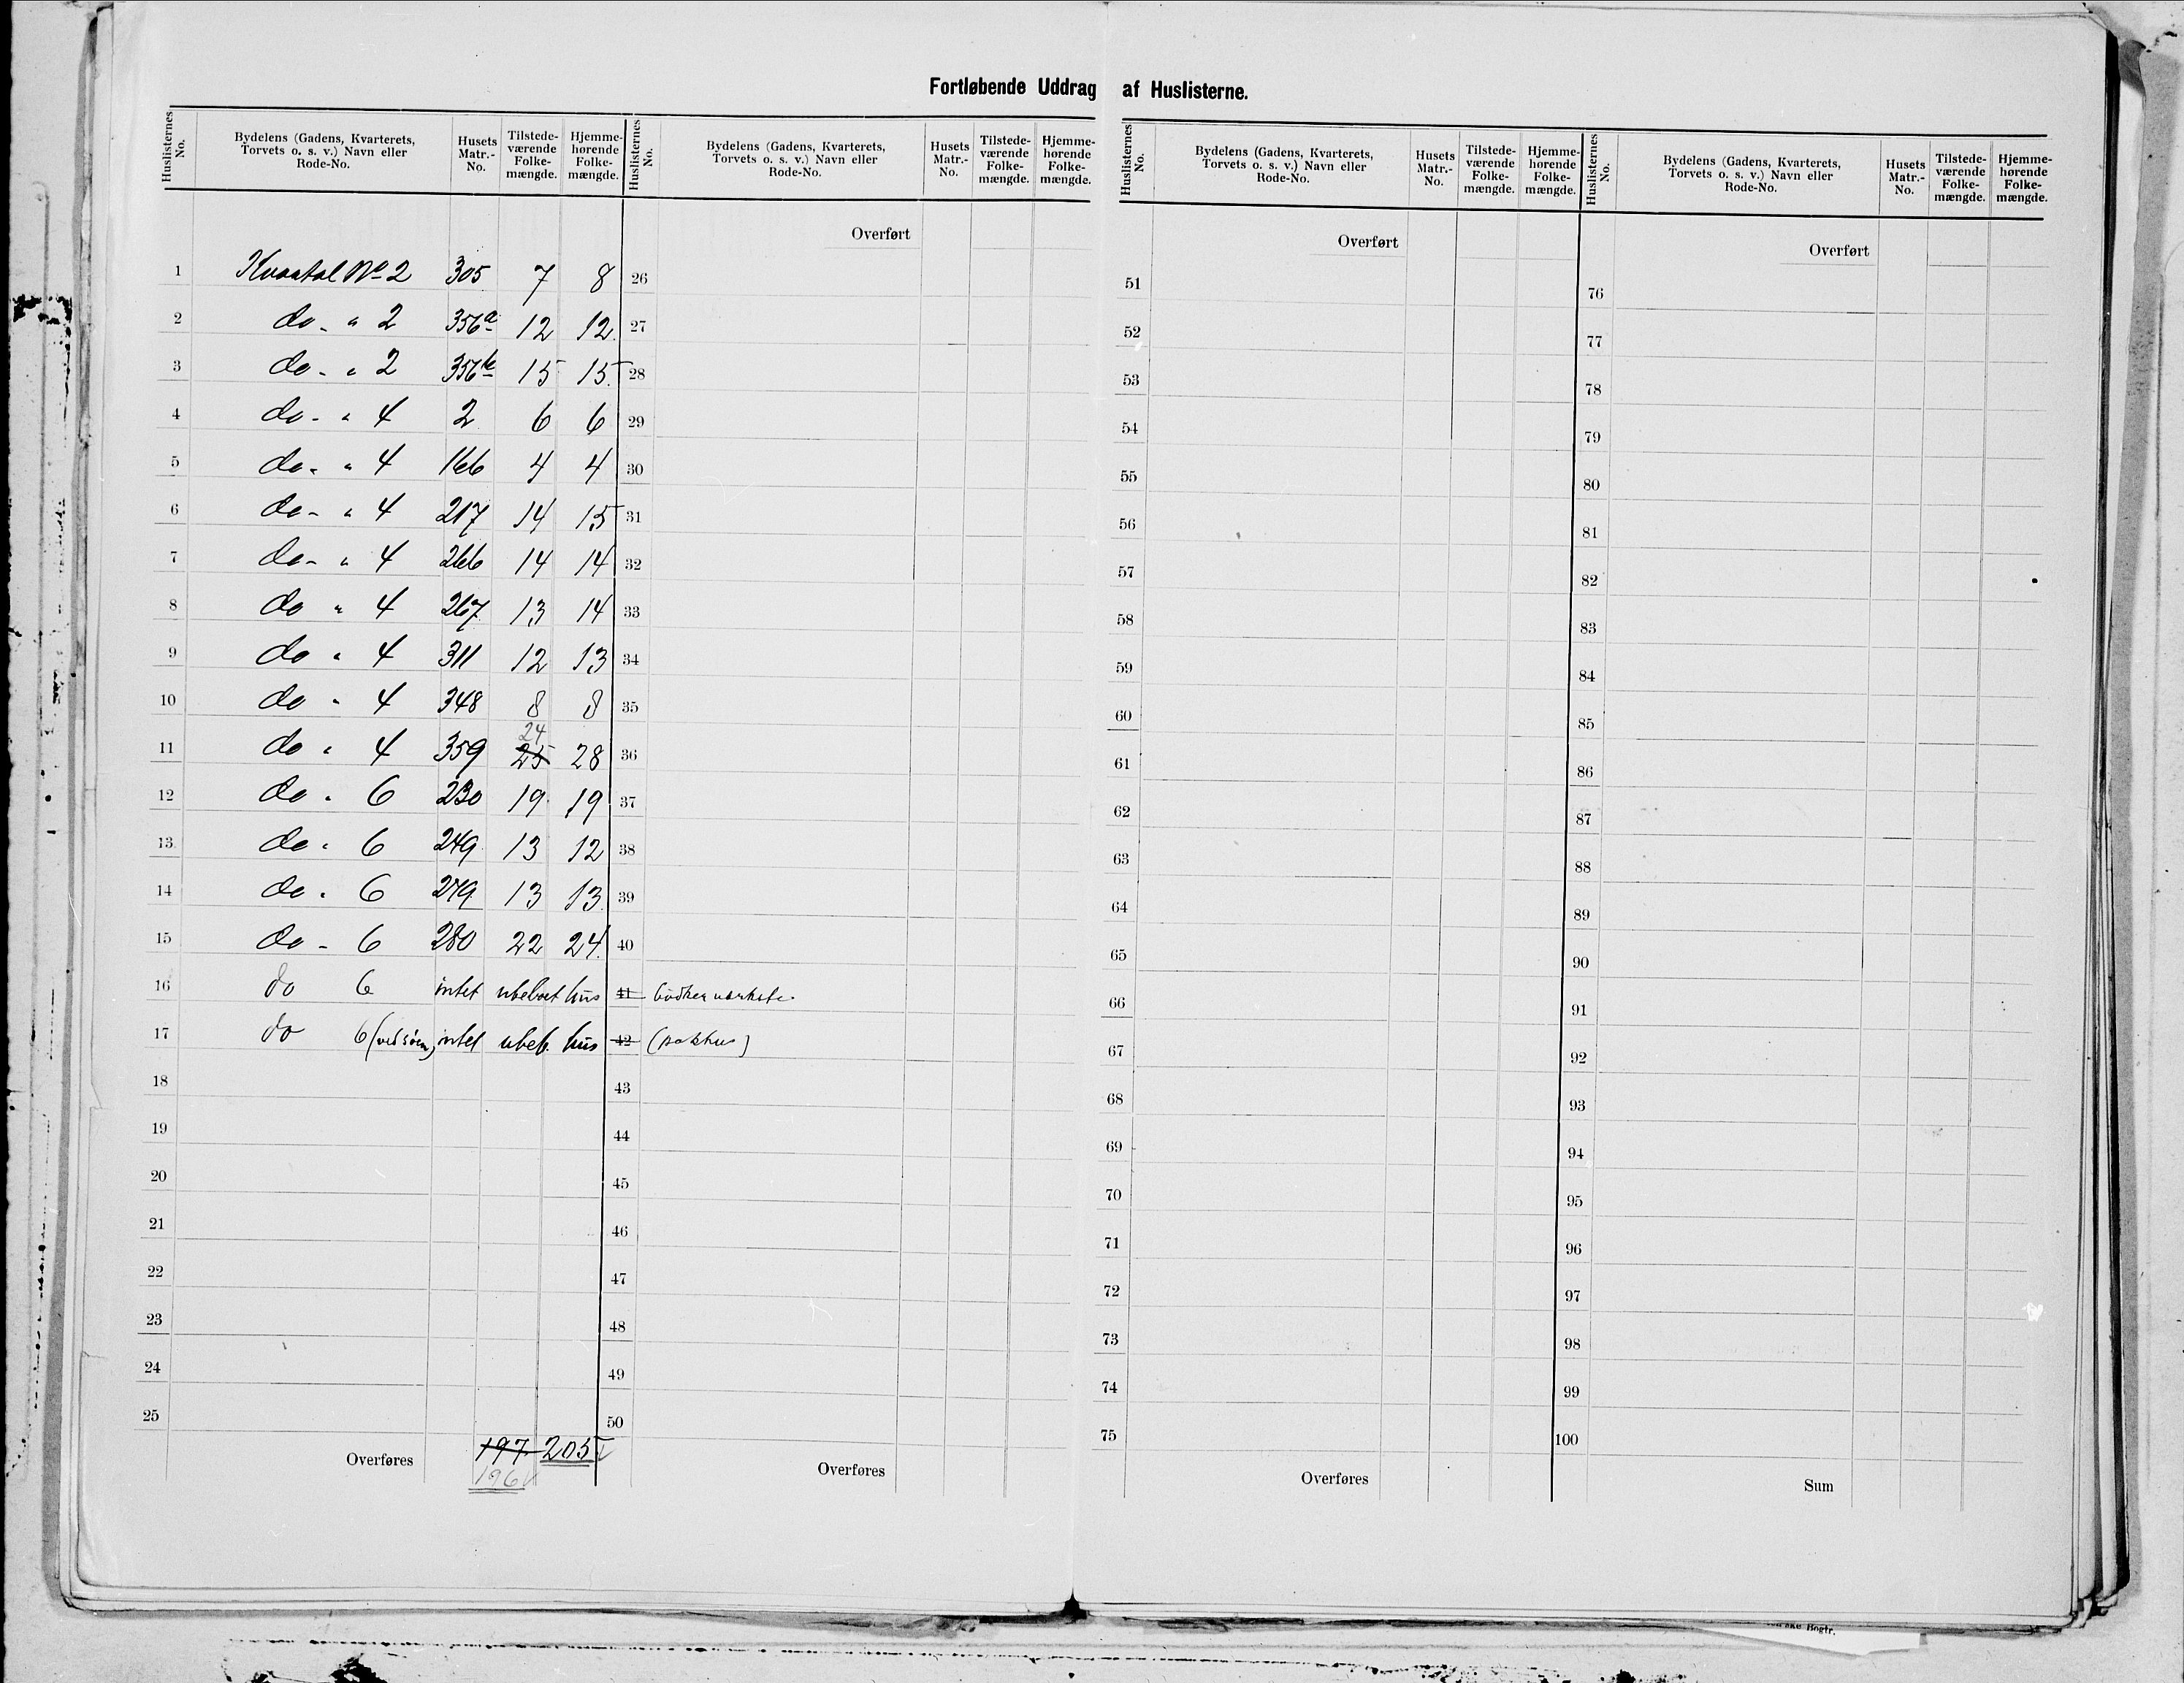 Fortløbende Uddrag af Huslisterne.
Huslisternes No. Bydelens (Gadens, Kvarterets, Torvets o. s. v.) Navn eller Rode-No. Husets Matr.-No. Tilstede-værende Folke-mængde. Hjemme-hørende Folke-mængde.
1 Kvartal No 2 305 7 8
2 do - " 2 356a 12 12
3 do - " 2 356b 15 15
4 do - " 4 2 6 6
5 do - " 4 166 4 4
6 do - " 4 217 14 15
7 do - " 4 266 14 14
8 do " 4 267 13 14
9 do " 4 311 12 13
10 do " 4 348 8 8
24
11 do " 4 359 25 28
12 do " 6 230 19 19
13 do " 6 249 13 12
14 do " 6 279 13 13
15 do - 6 280 22 24
16 do 6 intet ubeboet hus
17 do 6 (ved søen) intet ubeb. hus
18
19
20
21
22
23
24
25
Overføres 197 205
196
Huslisternes No. Bydelens (Gadens, Kvarterets, Torvets o. s. v.) Navn eller Rode-No. Husets Matr.-No. Tilstede-værende Folke-mængde. Hjemme-hørende Folke-mængde.
Overført
26
27
28
29
30
31
32
33
34
35
36
37
38
39
40
41 bødkerværksted.
42 (pakhus)
43
44
45
46
47
48
49
50
Overføres
Huslisternes No. Bydelens (Gadens, Kvarterets, Torvets o. s. v.) Navn eller Rode-No. Husets Matr.-No. Tilstede-værende Folke-mængde. Hjemme-hørende Folke-mængde.
Overført
51
52
53
54
55
56
57
58
59
60
61
62
63
64
65
66
67
68
69
70
71
72
73
74
75
Overføres
Huslisternes No. Bydelens (Gadens, Kvarterets, Torvets o. s. v.) Navn eller Rode-No. Husets Matr.-No. Tilstede-værende Folke-mængde. Hjemme-hørende Folke-mængde.
Overført
76
77
78
79
80
81
82
83
84
85
86
87
88
89
90
91
92
93
94
95
96
97
98
99
100
Sum
Bogtr.